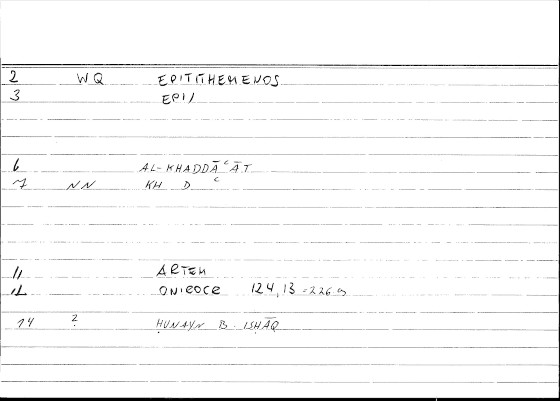 2 WQ EPITITHEMENOS
3 EPI/
6 AL-KHADDĀʿĀT
7 NN KH D ʿ
11 ARTEM
12 ONIROCR 124,13 = 226,9
14 ? ḤUNAYN B. ISḤĀQ